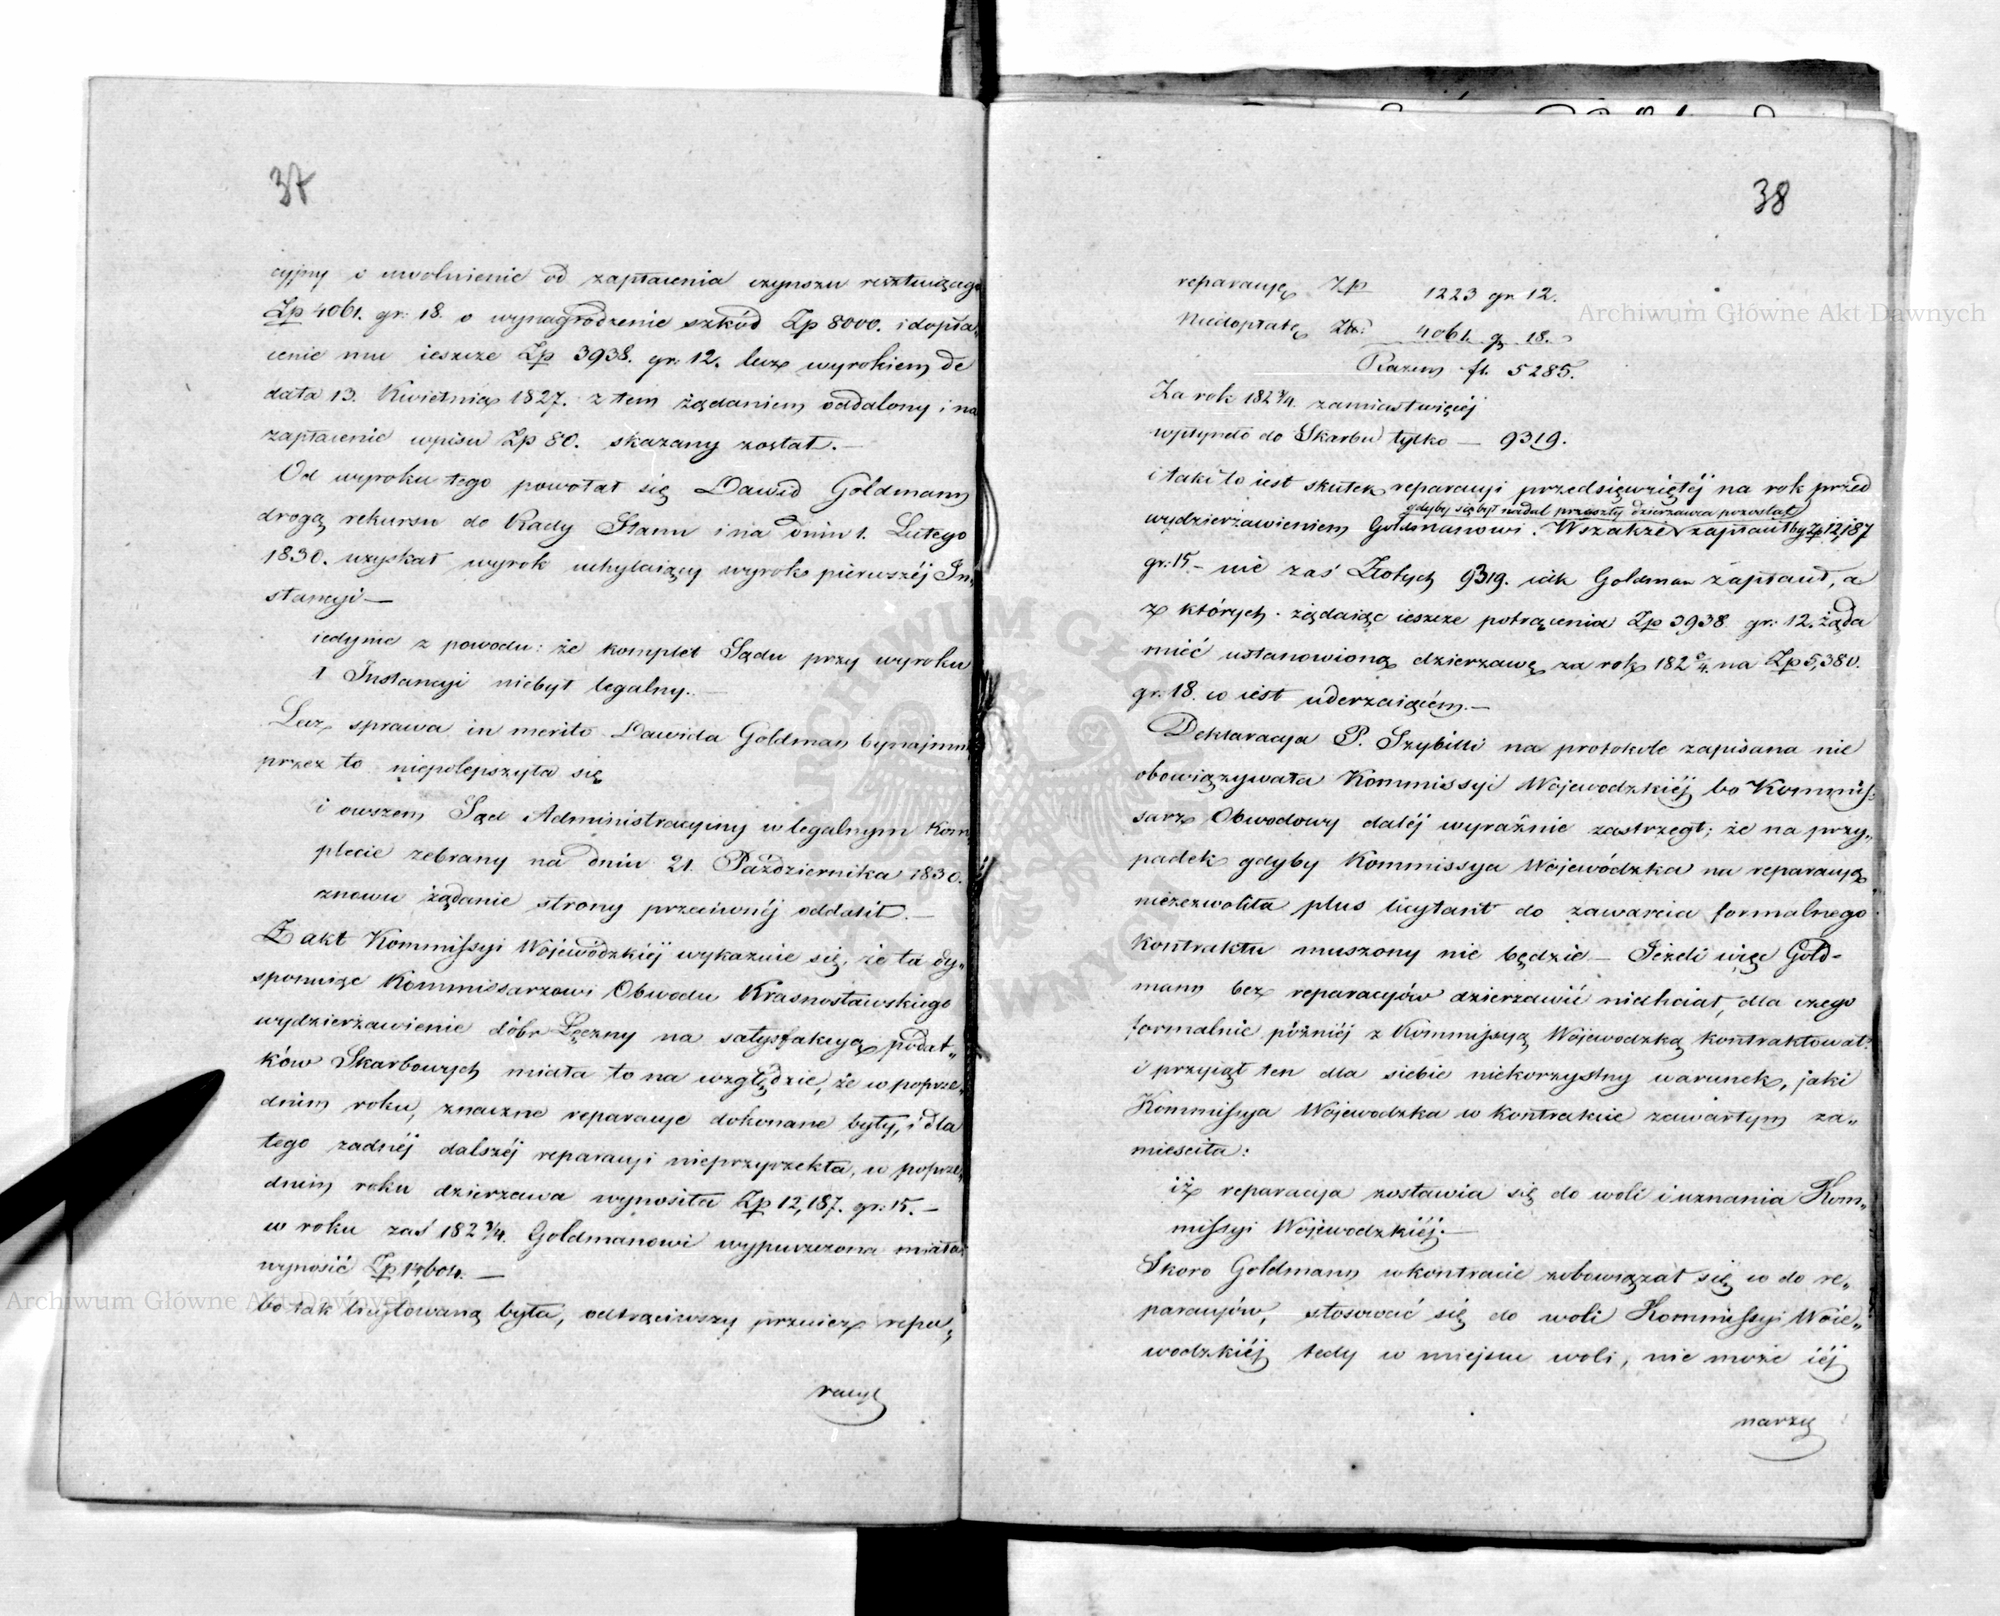 37
cyjny o uwolnienie od zapłacenia czynszu resztuiącego
Zp 4061. gr: 18. o wynagrodzenie szkód Zp 8000. i dopła„
cenie mu ieszcze Zp 3938. gr: 12. lecz wyrokiem de
data 13. Kwietnia 1827. z tem żądaniem oddalony i na
zapłacenie wpisu Zp 80. skazany został.—
Od wyroku tego powołał się Dawid Goldmann
drogą rekursu do Rady Stanu i na dniu 1. Lutego
1830. uzyskał wyrok uchylaiący wyrok pierwszéj In„
stancyi—
iedynie z powodu: że komplet Sądu przy wyroku
I Instancyi niebył legalny.—
Lecz sprawa in merito Dawida Goldman bynajmni
przez to niepolepszyła się
i owszem Sąd Administracyiny w legalnym Kom
plecie zebrany na dniu 21. Października 1830.
znowu żądanie strony przeciwnéj oddalił.—
Z akt Kommissyi Wojewódzkiéj wykazuie się, że ta dy„
sponuiąc Kommissarzowi Obwodu Krasnostawskiego
wydzierżawienie dóbr Łęczny na satysfakcyą podat„
ków Skarbowych miała to na względzie, że w poprze„
dnim roku, znaczne reparacye dokonane były, i dla
tego żadnéj dalszéj reparacyi nieprzyrzekła, w poprze„
dnim roku dzierżawa wynosiła Zp 12,187. gr: 15.—
w roku zaś 182 3/4. Goldmanowi wypuszczona miała
wynosić Zp 14,604.—
bo tak licytowaną była, odtrąciwszy przecież repa„
racyę
38
reparacyę Zp 1223 gr 12.
Niedopłatę Zł: 4061. g. 18.
Razem fl. 5285.
Za rok 182 3/4. zamiast więcéj
wpłynęło do Skarbu tylko — 9319.
i taki to iest skutek reparacyi przedsięwziętéj na rok przed
gdyby się był nadal przeszły dzierżawca pozostał
wydzierżawieniem Goldmanowi. Wszakże zapłaciłby Zp 12,187
gr: 15— nie zaś Złotych 9319. iak Goldman zapłacił, a
z których żądaiąc ieszcze potrącenia Zp 3938 gr: 12. żąda
mieć ustanowioną dzierżawę za rok 182 3/4. na Zp 5,380.
gr: 18. co iest uderzaiącem.—
Deklaracya P. Szybilli na protokole zapisana nie
obowiązywała Kommissyi Wojewodzkiéj bo Kommis„
sarz Obwodowy daléj wyraźnie zastrzegł; że na przy„
padek gdyby Kommissya Wojewódzka na reparacyą
niezezwoliła plus licytant do zawarcia formalnego
kontraktu muszony nie będzie— Jeżeli więc Gold„
mann bez reparacyów dzierżawić niechciał, dla czego
formalnie późniéj z Kommissyą Wojewodzką kontraktował
i przyiął ten dla siebie niekorzystny warunek, jaki
Kommissya Wojewodzka w kontrakcie zawartym za„
mieściła:
iż reparacya zostawia się do woli i uznania Kom„
missyi Wojewodzkiéj.—
Skoro Goldmann w kontracie zobowiązał się co do re„
paracyów, stosować się do woli Kommissyi Woie„
wodzkiéj tedy w miejscu woli, nie może iéj
narzu
Archiwum Główne Akt Dawnych
Archiwum Główne Akt Dawnych
ARCHIWUM GŁÓWNE AKT DAWNYCH